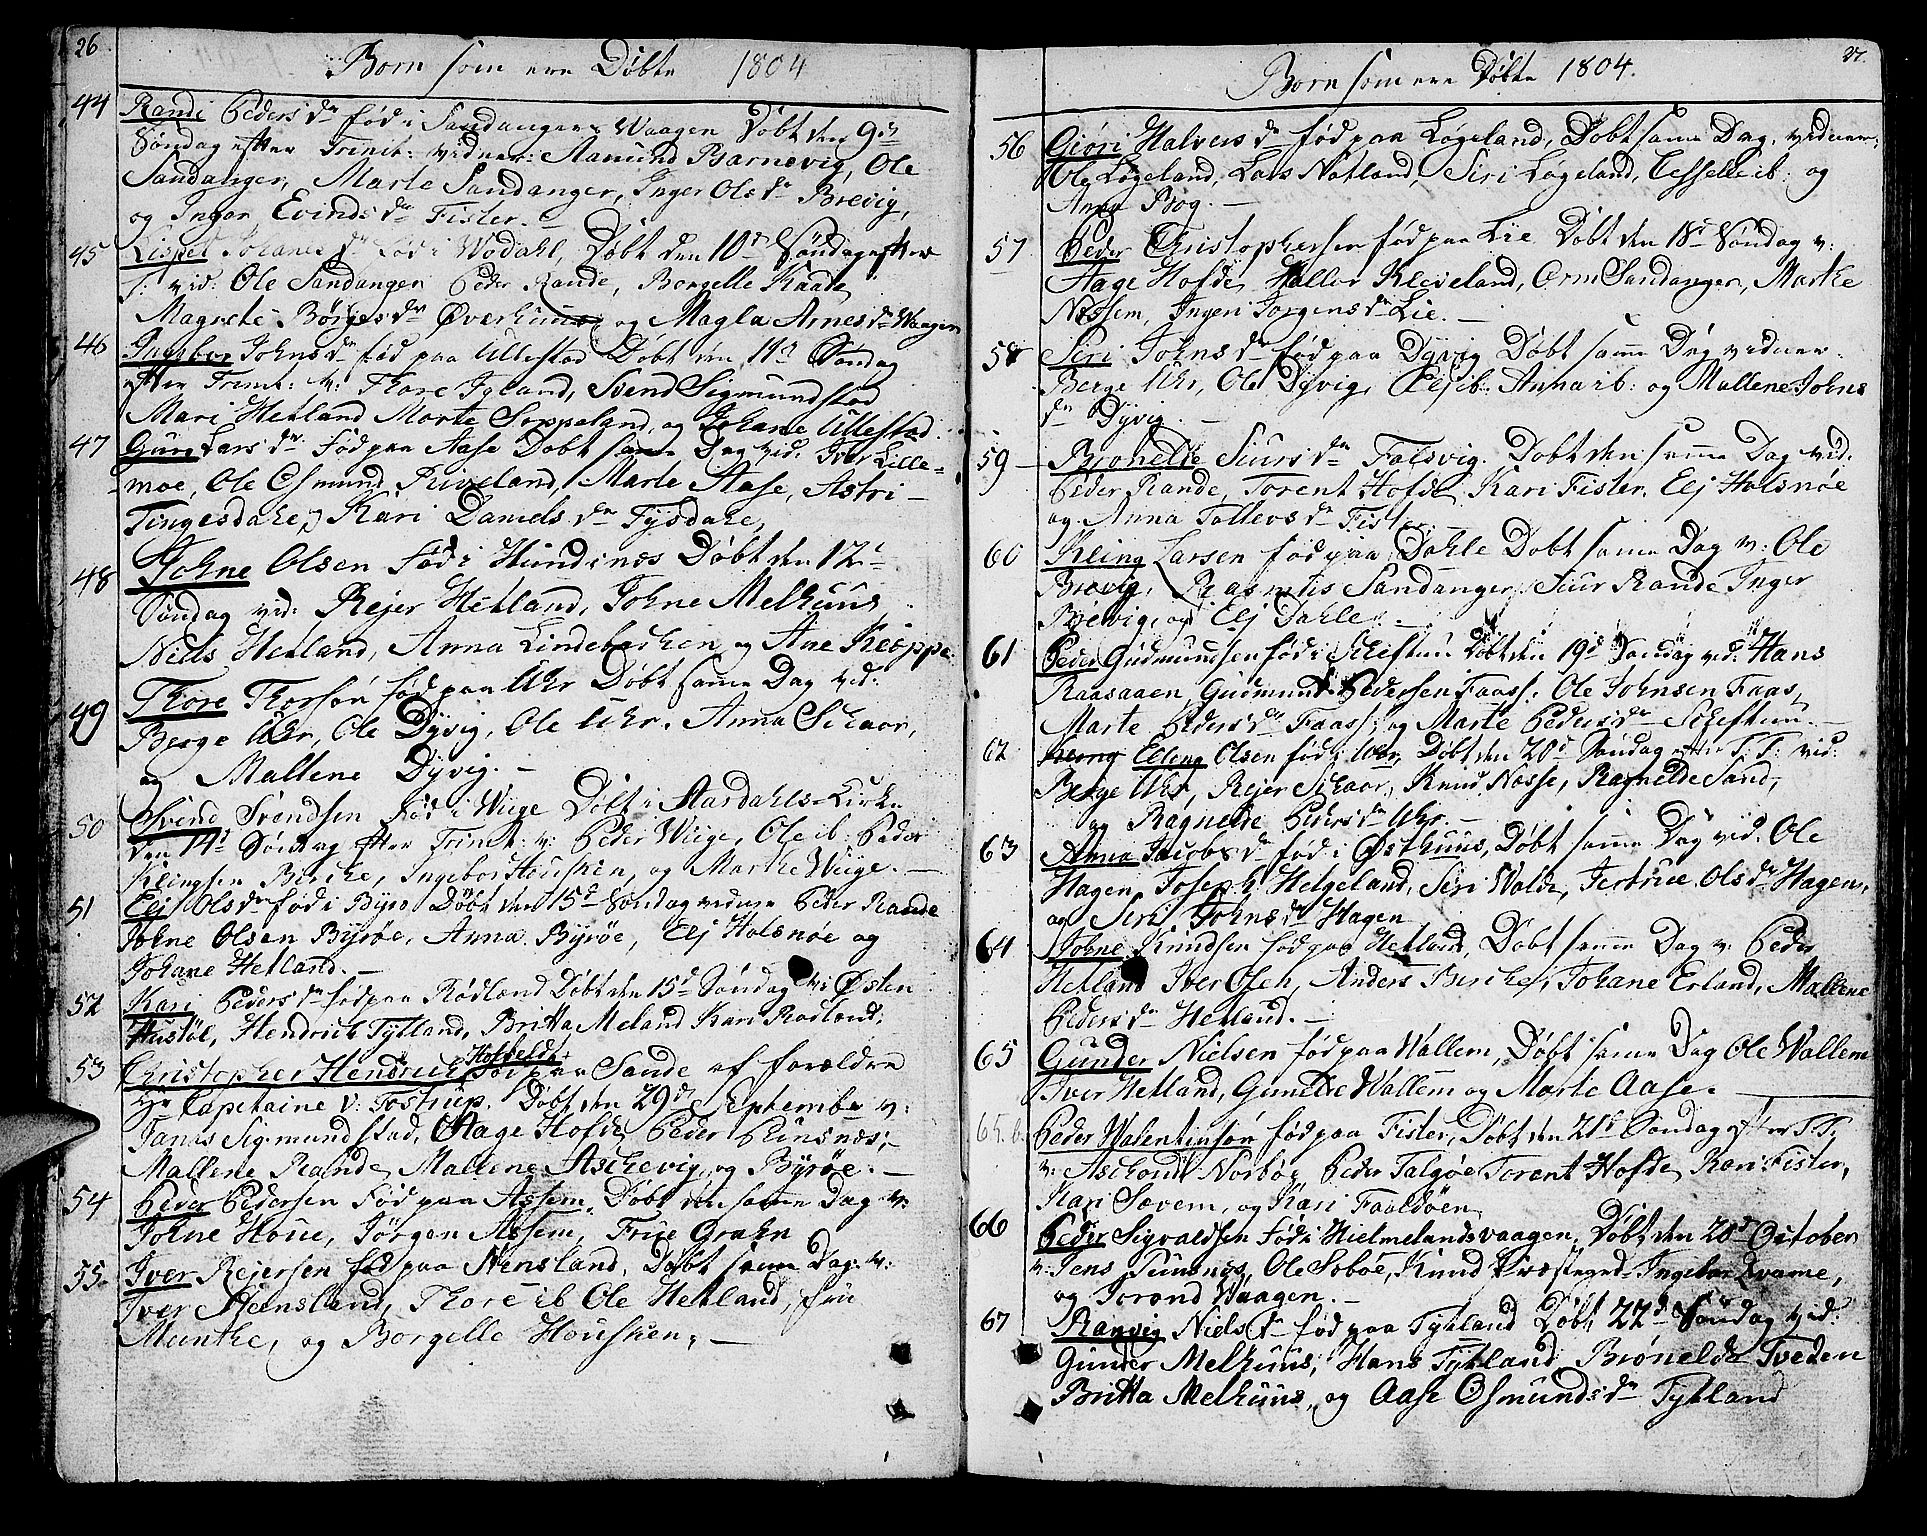 26
Børn som ere Døbte 1804
44 Randi Peders dr fød i Sandanger Waagen Døbt den 9de
Søndag efter Trinit: vidner: Aamund Barnevig, Ole
Sandanger, Marte Sandanger, Inger Ols dr Brevig,
og Inger Evinds dr Fister. -
45 Lispet Johanes dr fød i Wodahl, Døbt den 10d Søndag efter
T: vid: Ole Sandanger Peder Rande, Borgelle Kaade
Magrete Børges dr Øverhuus og Magla Arnes dr Waagen
46 Ingebor Johns dr fød paa Ullestad Døbt den 11d Søndag
efter Trinit: v: Thore Tyland, Svend Sigmundstad
Mari Hetland Morte Soppeland, og Johane Ullestad
47 Guro Lars dr fød paa Aase Døbt samme Dag vid: Iver Lille-
moe, Ole Osmund Riveland, Marte Aase, Astri
Tingesdale, Kari Daniels dr Tysdale,
48 Johne Olsen fød i Hundsnes Døbt den 12d
Søndag vid: Rejer Hetland, Johne Melhuus,
Niels Hetland, Anna Lindebrecken og Ane Kloppe
49 Thore Thorsøn fød paa Uhr Døbt samme Dag vid:
Berge Uhr, Ole Dyvig, Ole Uhr, Anna Schaar,
og Mallene Dyvig. -
50 Svend Svendsen fød i Wiige Døbt i Aardahls Kirke
den 14d Søndag efter Trinit: v: Peder Wiige, Ole ib: Peder
Klingsen Bircke, Ingebor Housken, og Marthe Wiige. -
51 Elj Ols dr fød i Byrø Døbt den 15d Søndag vidner Peder Rande
Johne Olsen Byrøe, Anna Byrøe, Elj Halsnøe og
Johane Hetland. -
52 Kari Peders dr fød paa Rødland Døbt den 15d Søndag v: Østen
Hustøl, Hendrich Tytland, Britta Meland Kari Rødland,
53 Christopher Hendrich Hosfeldt fød paa Sande af forældre
Hr Capitaine v: Tostrup. Døbt den 29d Septembr v:
Janis Sigmundstad, Aage Hofde Peder Puusnæs,
Mallene Rande, Mallene Aschevig, og Byrøe. -
54 Peder Pedersen fød paa Assem, Døbt den samme Dag v:
Johne Houe, Jørgen Assem, Frue Grahn
55 Iver Rejersen fød paa Nensland, Døbt samme Dag: v:
Iver Steensland, Thore ib Ole Hetland, frue
Munthe, og Borgelle Housken, -
27.
Børn som ere Døbte 1804.
56 Giøri Halvors dr fød paa Løgeland, Døbt samme Dag, vidner,
Ole Løgeland, Lars Nøtland, Siri Løgeland, Cesselle ib: og
Anna Brog. -
57 Peder Christophersen fød paa Lie Døbt den 18d Søndag v:
Aage Hofde, Hallor Kleveland, Orm Sandanger, Marthe
Nessem, Ingeri Jørgens dr Lie. -
58 Siri Johns dr fød paa Dyvig Døbt samme Dag vidner.
Berge Uhr, Ole Dyvig, Elj ib: Anna ib: og Mallene Johns
dr Dyvig. -
59 Brønelde Siurs dr Falsvig. Døbt den samme Dag vid.
Peder Rande, Torent Hofde, Kari Fister, Elj Halsnøe
og Anna Tollevs dr Fister. -
60 Kling Larsen fød paa Dahle Døbt samme Dag v: Ole
Brevig, Rasmus Sandanger, Siur Rande Inger
Brevig, og Elj Dahle. -
61 Peder Gudmundsen fød i Schiftun Døbt den 19d Søndag vid: Hans
Raasaaen, Gudmund Pedersen Faass. Ole Johnsen Faas,
Marte Peders dr Faass, og Marte Peders dr Schiftun. -
62 Elling Olsen fød i Uhr, Døbt den 20d Søndag efter T: T: vid:
Berge Uhr, Rejer Schaar, Knud Nøsse, Ragnelde Sand,
og Ragnelde Peders dr Uhr. -
63 Anna Jacobs dr fød i Østhuus, Døbt samme Dag vid: Ole
Hagen, Joseph Helgeland, Siri Walde, Jertrue Ols dr Hagen,
og Siri Johns dr Hagen
64 Johne Knudsen fød paa Hetland, Døbt samme Dag v: Peder
Hetland Iver Osen, Anders Bircke, Johane Erland, Mallene
Peders dr Hetland. -
65 Gunder Nielsen fød paa Wallem, Døbt samme Dag Ole Wallem
Iver Hetland, Gunelde Wallem og Marte Aase.
65.b. Peder Walentinsøn fød paa Fister, Døbt den 21d Søndag efter T: T:
v: Aschout Norbøe, Peder Talgøe Torent Hofde, Kari Fister,
Kari Sævem, og Kari Faaldøen
66 Peder Sigvaldsen fød i Hielmelandsvaagen, Døbt den 20d October
v: Jens Puusnes, Ole Sobøe, Knud Præstegrd Ingebor Qvame,
og Torond Waagen. -
67 Ranvig Niels dr fød paa Tytland Døbt 22d Søndag vid:
Gunder Melhuus, Hans Tytland, Brønelde Tveden
Britta Melhuus, og Aase Osmunds dr Tytland